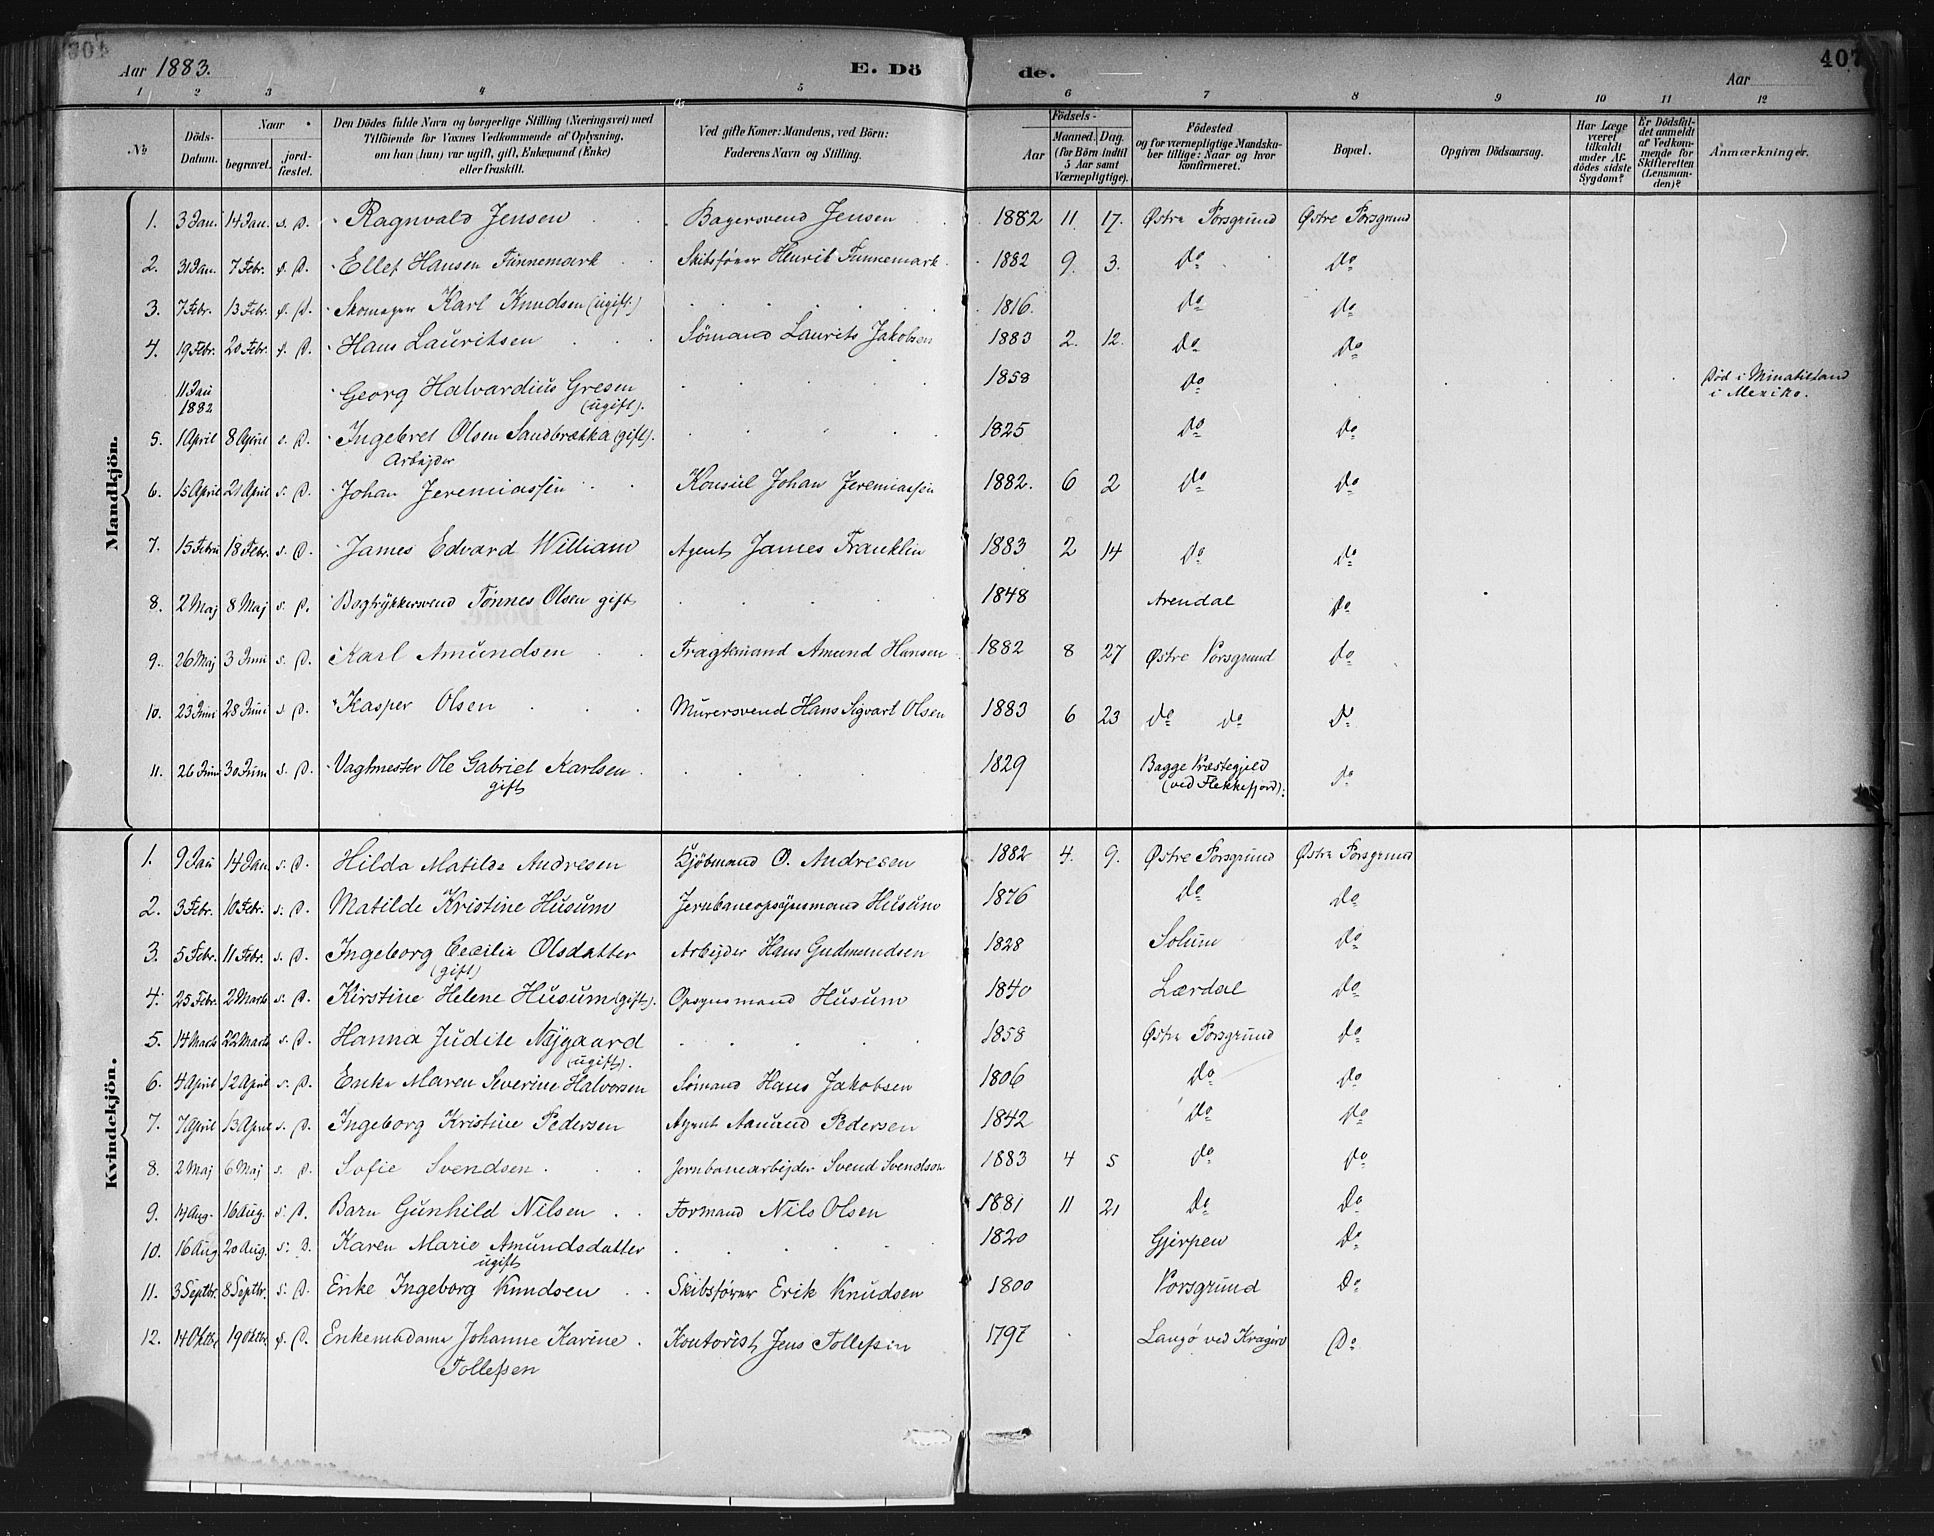 Aar 1883. E. Dö de. Aar 407
1 2 3 4 5 6 7 8 9 10 11 12
No
Döds-Datum.
Naar begravet. jordfæstet.
Den Dödes fulde Navn og borgerlige Stilling (Næringsvei) med
Tilföiende for Voxnes Vedkommende af Oplysning,
om han (hun) var ugift, gift, Enkemand (Enke)
eller fraskilt.
Ved gifte Koner: Mandens, ved Börn:
Faderens Navn og Stilling.
Födsels-
Aar Maaned. Dag.
(for Börn indtil
5 Aar samt
Værnepligtige).
Födested
og for værnepligtige Mandskaber tillige: Naar og hvor
konfirmeret.
Bopæl.
Opgiven Dödsaarsag.
Har Læge
været
tilkaldt
under Afdödes sidste
Sygdom?
Er Dödsfaldet anmeldt
af Vedkommende for
Skifteretten
(Lensmanden)?
Anmærkninger.
Mandkjön.
1. 3 Jan. 14 Jan. s. D. Ragnvald Jensen Bagersvend Jensen 1882 11 17. Østre Porsgrund Østre Porsgrund
2. 31 Jan. 7 Febr. s. D. Ellef Hansen Funnemark Skibsfører Henrik Funnemark 1882 9. 3. do do
3. 7 Febr. 13 Febr. s. D. Skomager Karl Knudsen (ugift.) 1816. do do
4. 19 Febr. 20 Febr. s. D. Hans Lauritsen Sømand Laurits Jakobsen 1883 2. 12. do do
11 Jan 1882 Georg Halvardius Gresen (ugift). 1858 do Død i Minatitland
i Mexiko.
5. 1 April 8 April s. D. Ingebret Olsen Sandbrækka (gift). 1825 do do
Arbejder
6. 15 April 21 April s. D. Johan Jeremiassen Konsul Johan Jeremiassen 1882. 6 2 do do
7. 15 Febru 18 Febr. s. D. James Edvard William Agent James Franklin 1883 2 14 do do
8. 2 Maj 8 Maj s. D. Bogtrykkersvend Tønnes Olsen gift 1848 Arendal do
9. 26 Maj 3 Juni s. D. Karl Amundsen Fragtemand Amund Hansen 1882 8 27 Østre Porsgrund do
10. 23 Juni 28 Juni s. D. Kasper Olsen Murersvend Hans Sigvart Olsen 1883 6 23 do do do
11. 26 Juni 30 Juni s. D. Vagtmester Ole Gabriel Karlsen 1829 Bagge Præstegjeld do
gift (ved Flekkefjord).
Kvindekjön.
1. 9 Jan 14 Jan. s. D. Hilda Matilde Andresen Kjøbmand O. Andresen 1882 4. 9. Østre Porsgrund Østre Porsgrund
2. 3 Febr. 10 Febr. s. D. Matilde Kristine Husum Jernbaneopsynsmand Husum 1876 do do
3. 5 Febr. 11 Febr. s. D. Ingeborg Cecilie Olsdatter Arbejder Hans Gudmundsen 1828 Solum do
(gift)
4. 25 Febr. 2 Marts s. D. Kirstine Helene Husum (gift). Opsynsmand Husum 1840 Lærdal do
5. 14 Marts 22 Marts s. D. Hanna Judite Nygaard 1858 Østre Porsgrund do
(ugift).
6. 4 April 12 April s. D. Enke Maren Severine Halvorsen Sømand Hans Jakobsen 1806 do do
7. 7 April 13 April s. D. Ingeborg Kristine Pedersen Agent Aanund Pedersen 1842 do do
8. 2 Maj 6 Maj s. D. Sofie Svendsen Jernbanearbejder Svend Svendsen 1883 4 5 do do
9. 14 Aug. 16 Aug. s. D. Barn Gunhild Nilsen Formand Nils Olsen 1881 11 21 do do
10. 16 Aug 20 Aug. s. D. Karen Marie Amundsdatter 1820 Gjerpen do
ugift
11. 3 Septbr. 8 Septbr. s. D. Enke Ingeborg Knudsen Skibsfører Erik Knudsen 1800 Porsgrund Do
12. 14 Oktbr 19 Oktbr. s. D. Enkemadame Johanne Karine Kontorist Jens Tollefsen 1797 Langø ved Kragerø Do
Tollefsen